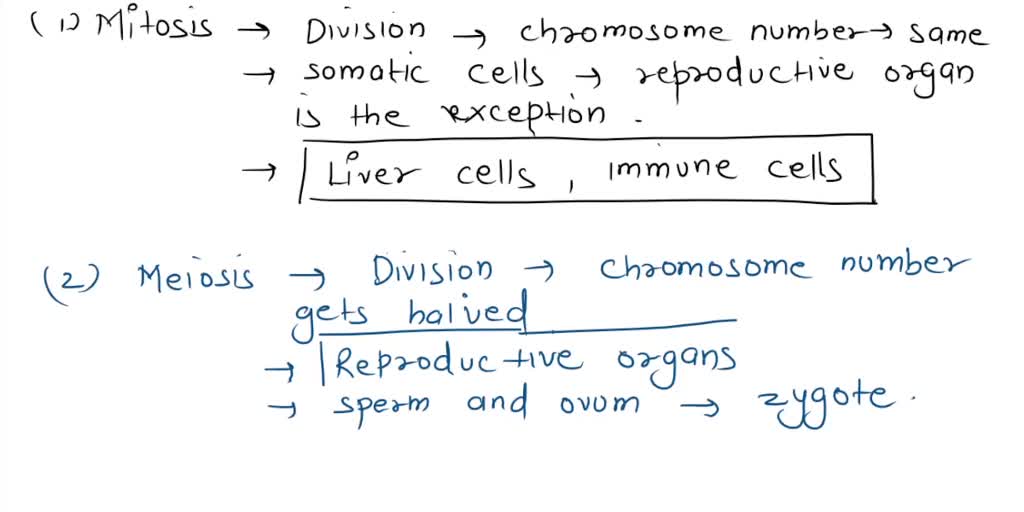 (1) Mitosis → Division → chromosome number → same
→ somatic cells → reproductive organ
is the exception.
→ Liver cells, immune cells
(2) Meiosis → Division → chromosome number
gets halved
→ Reproductive organs
→ sperm and ovum → zygote.